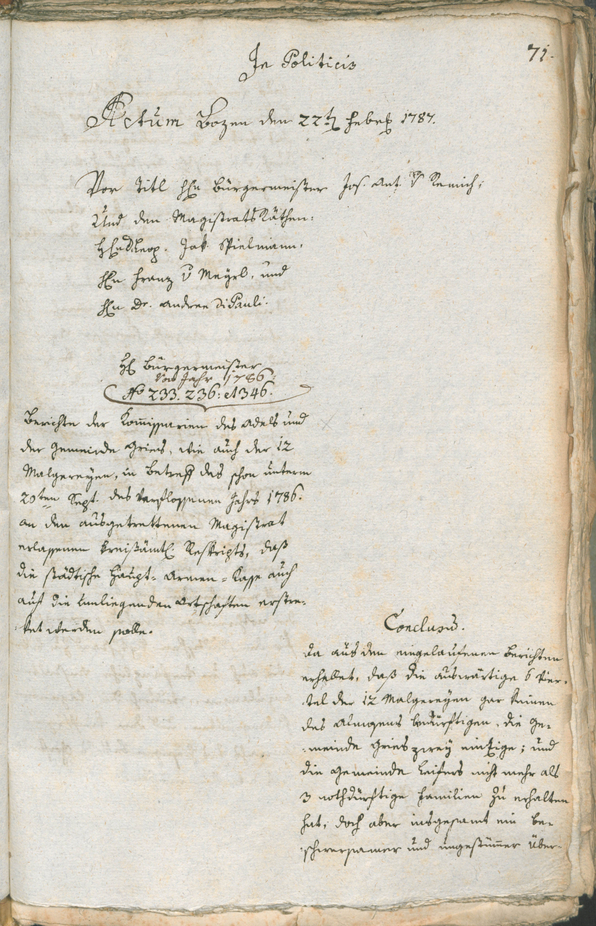 In Politicis
71.
Actum Bozen den 22t Feber 1787.
Vor Titl Hhn Bürgermeister Jos. Ant. v Remich;
Und den Magistrats Räthen:
Jak. Spielmann,
Hhn Franz v Mayrl, und
Hhn Dr. Andree Di Pauli.
H Bürgermeister
Vom Jahr 1786
No 233. 236: et 346.
Berichte der Kommissarien des Adels und
der Gemeinde Gries, wie auch der 12
Malgereyen, in Betreff des schon unterm
29ten Sept. des verflossenen Jahrs 1786.
an den ausgetrettenen Magistrat
erlassenen Kreisämtl Reskripts, daß
die städtische Haupt-Armen-Kasse auch
auf die umliegenden Ortschaften erstre-
ket werden solle.
Conclusum.
Da aus den eingelaufenen Berichten
erhellet, daß die auswärtige 6 Vier-
tel der 12 Malgereyen gar keinen
des Almosens bedürftigen, die Ge-
meinde Gries zwey einzige; und
die Gemeinde Leifers nicht mehr als
3 nothdürftige Familien zu erhalten
hat; doch aber insgesamt ein be-
schwersamer und ungestümmer Über-